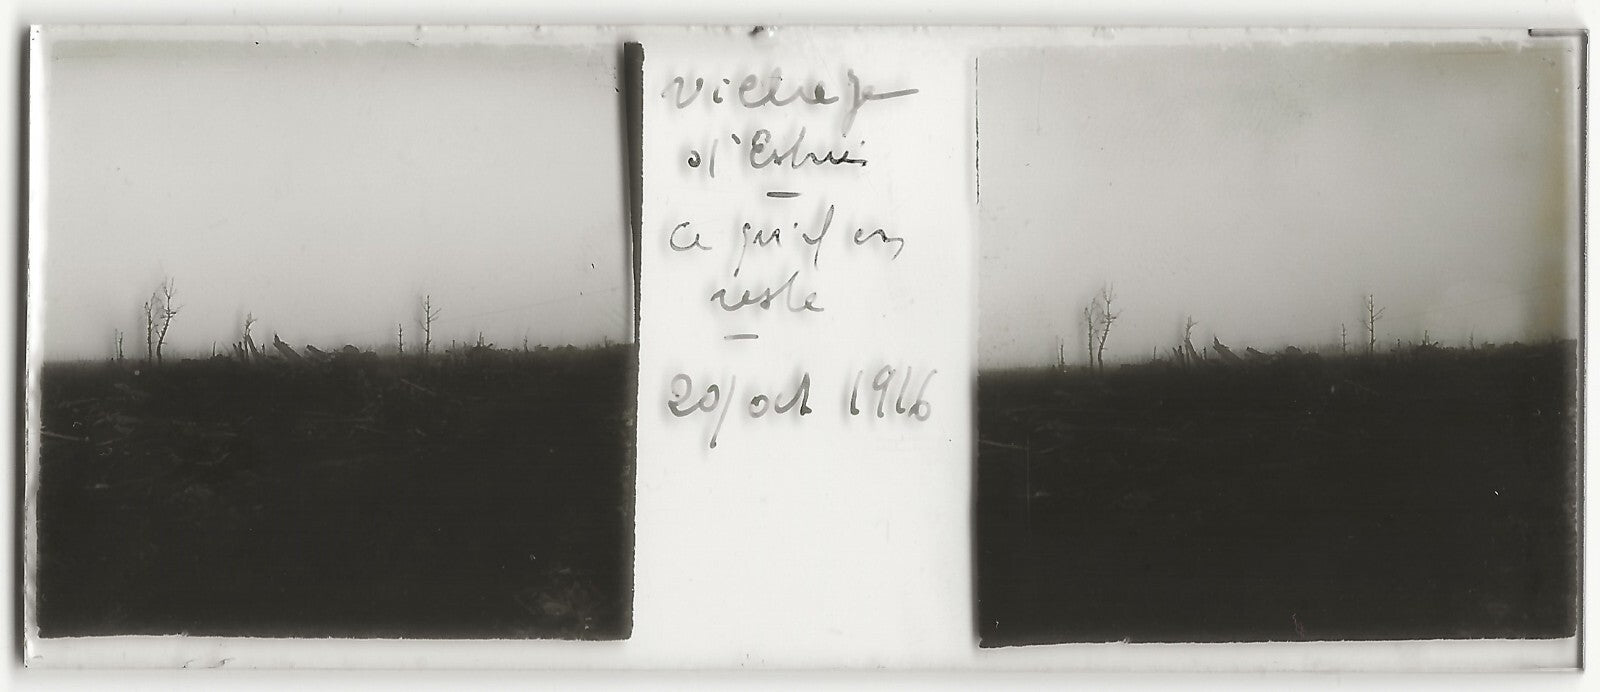 Village
d'Estrées
—
ce qu'il en
reste
—
20/oct 1916